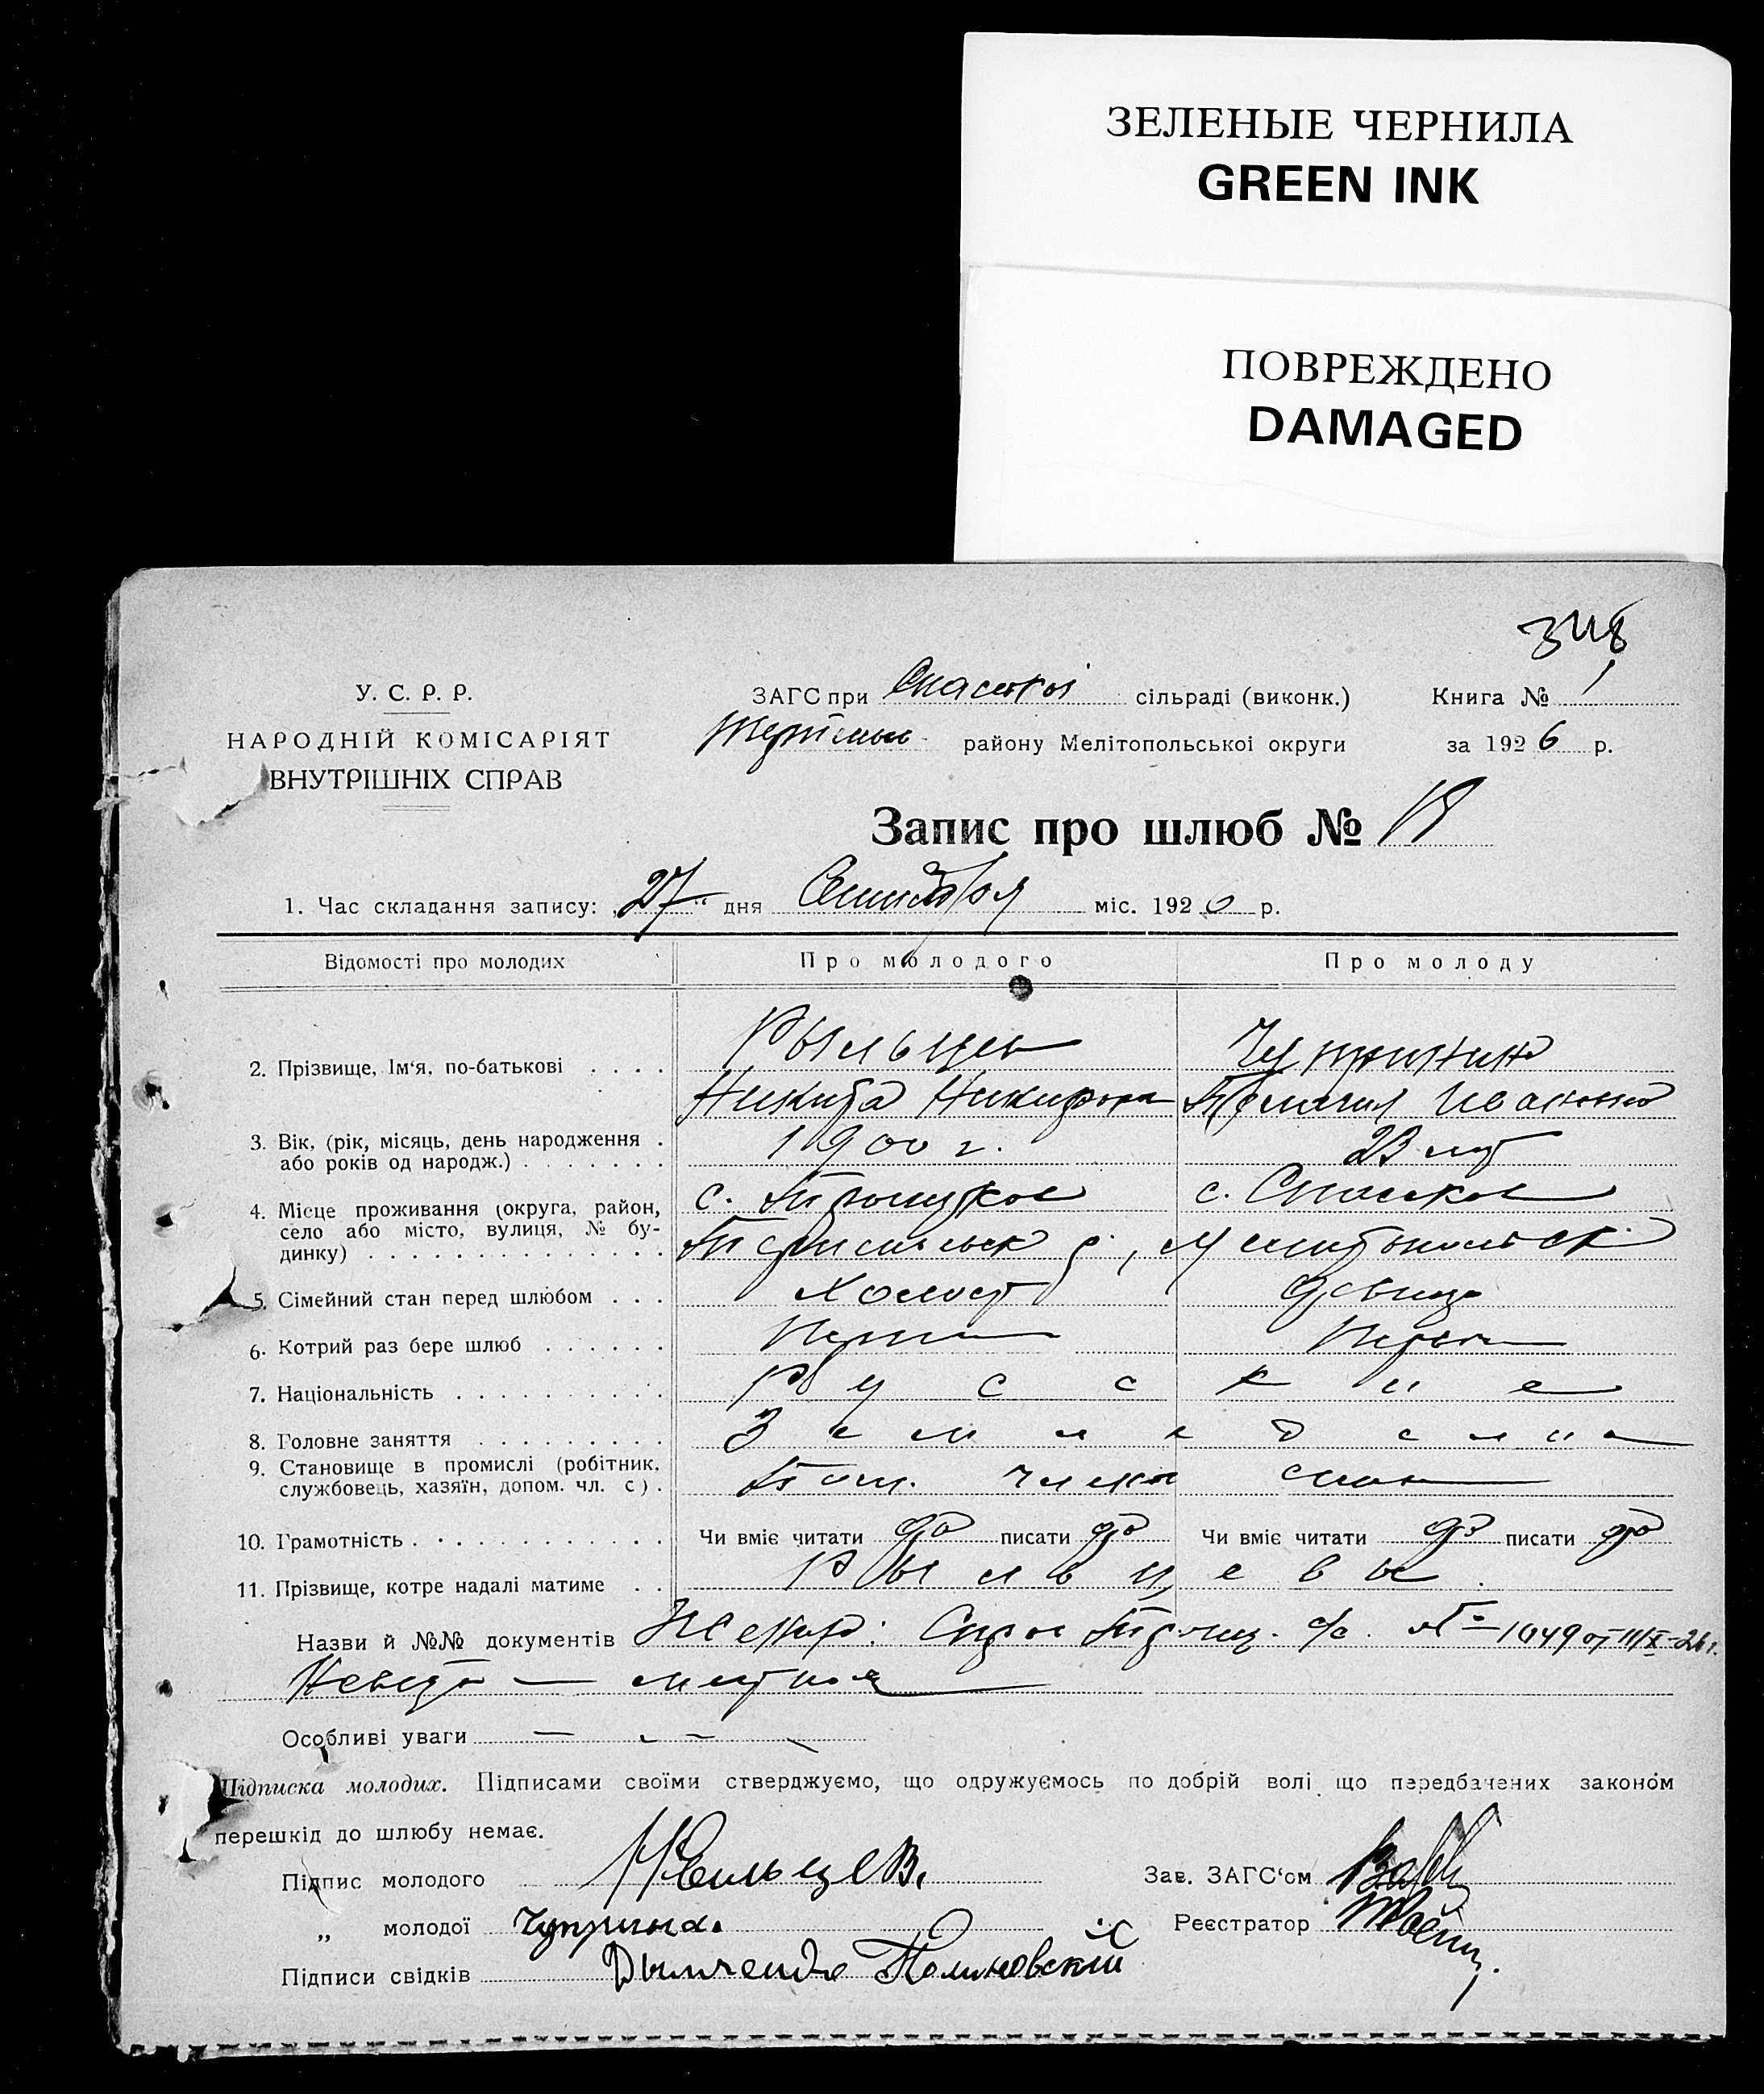 ЗЕЛЕНЫЕ ЧЕРНИЛА
GREEN INK
ПОВРЕЖДЕНО
DAMAGED
348
У. С. Р. Р.
НАРОДНІЙ КОМІСАРІЯТ
ВНУТРІШНІХ СПРАВ
ЗАГС при Спаської сільраді (виконк.) Книга № 1
району Мелітопольської округи за 1926 р.
Запис про шлюб №
1. Час складання запису: „27“ дня Сентября міс. 1926 р.
Відомості про молодих Про молодого Про молоду
2. Прізвище, Ім'я, по-батькові Рыльцев Чуприна
Никита Никифоров Ивановна
3. Вік, (рік, місяць, день народження або років од народж.) 1900 г. 23 лет
4. Місце проживання (округа, район, село або місто, вулиця, № будинку) с. Троицкое с. Спаское
р., Мелитопольск
5. Сімейний стан перед шлюбом Холост девица
6. Котрий раз бере шлюб Первый Первый
7. Національність Русские
8. Головне заняття
9. Становище в промислі (робітник, службовець, хазяїн, допом. чл. с). Пом. члены семьи
10. Грамотність Чи вміє читати да писати да Чи вміє читати да писати да
11. Прізвище, котре надалі матиме Рыльцевы.
Назви й №№ документів Жених: Справ Троиц. с/с. № 1049 от
Невеста — местная
Особливі уваги — — —
Підписка молодих. Підписами своїми стверджуємо, що одружуємось по добрій волі що передбачених законом
перешкід до шлюбу немає.
Підпис молодого Рыльцев. Зав. ЗАГС'ом
„ молодої Чуприна. Реєстратор
Підписи свідків